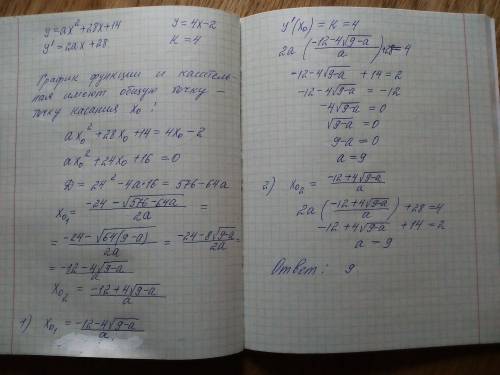 y = ax² + 28x + 14     y = 4x - 2
y' = 2ax + 28     K = 4
График функции и касатель-
ная имеют общую точку -
точку касания x₀:
ax₀² + 28x₀ + 14 = 4x₀ - 2
ax₀² + 24x₀ + 16 = 0
D = 24² - 4a·16 = 576 - 64a
x₀₁ = (-24 - √(576 - 64a))/2a =
= (-24 - √(64(9-a)))/2a = (-24 - 8√(9-a))/2a =
= (-12 - 4√(9-a))/a
x₀₂ = (-12 + 4√(9-a))/a
1) x₀₁ = (-12 - 4√(9-a))/a
y'(x₀) = K = 4
2a((-12 - 4√(9-a))/a) = 4
-12 - 4√(9-a) + 14 = 2
-12 - 4√(9-a) = -12
-4√(9-a) = 0
√(9-a) = 0
9 - a = 0
a = 9
2) x₀₂ = (-12 + 4√(9-a))/a
2a((-12 + 4√(9-a))/a) + 28 = 4
-12 + 4√(9-a) + 14 = 2
a = 9
Ответ: 9